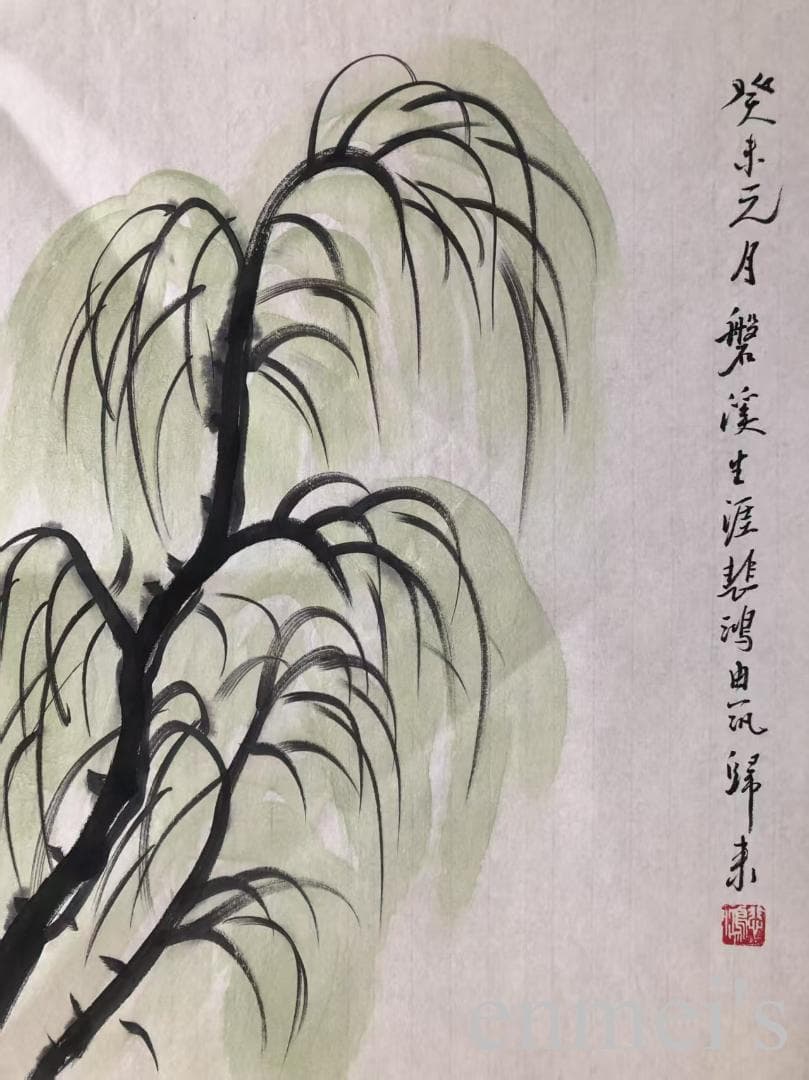 癸未元月磐溪生涯悲鸿由筑归来
悲鸿
enmei's